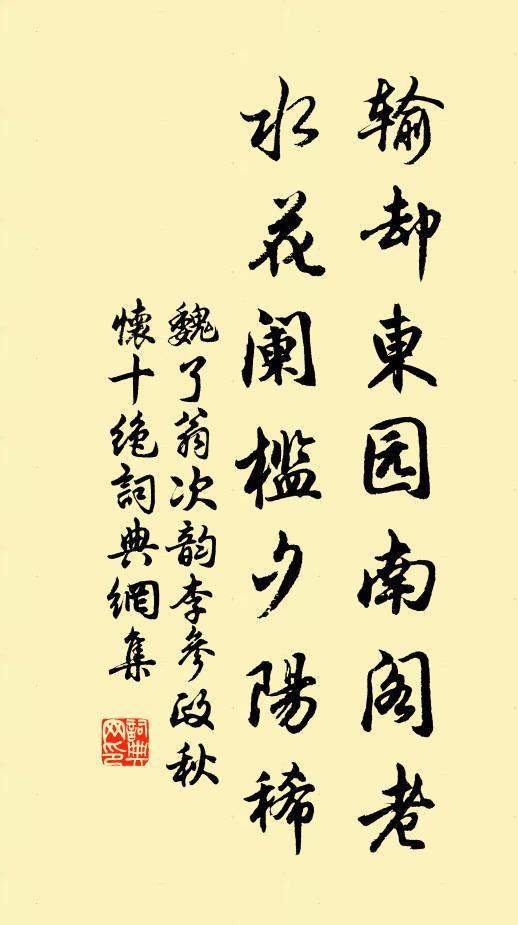 输却東园南阁老
水花阑槛夕陽稀
魏了翁次韵李參政秋
懷十绝詞典網集
詞典网印